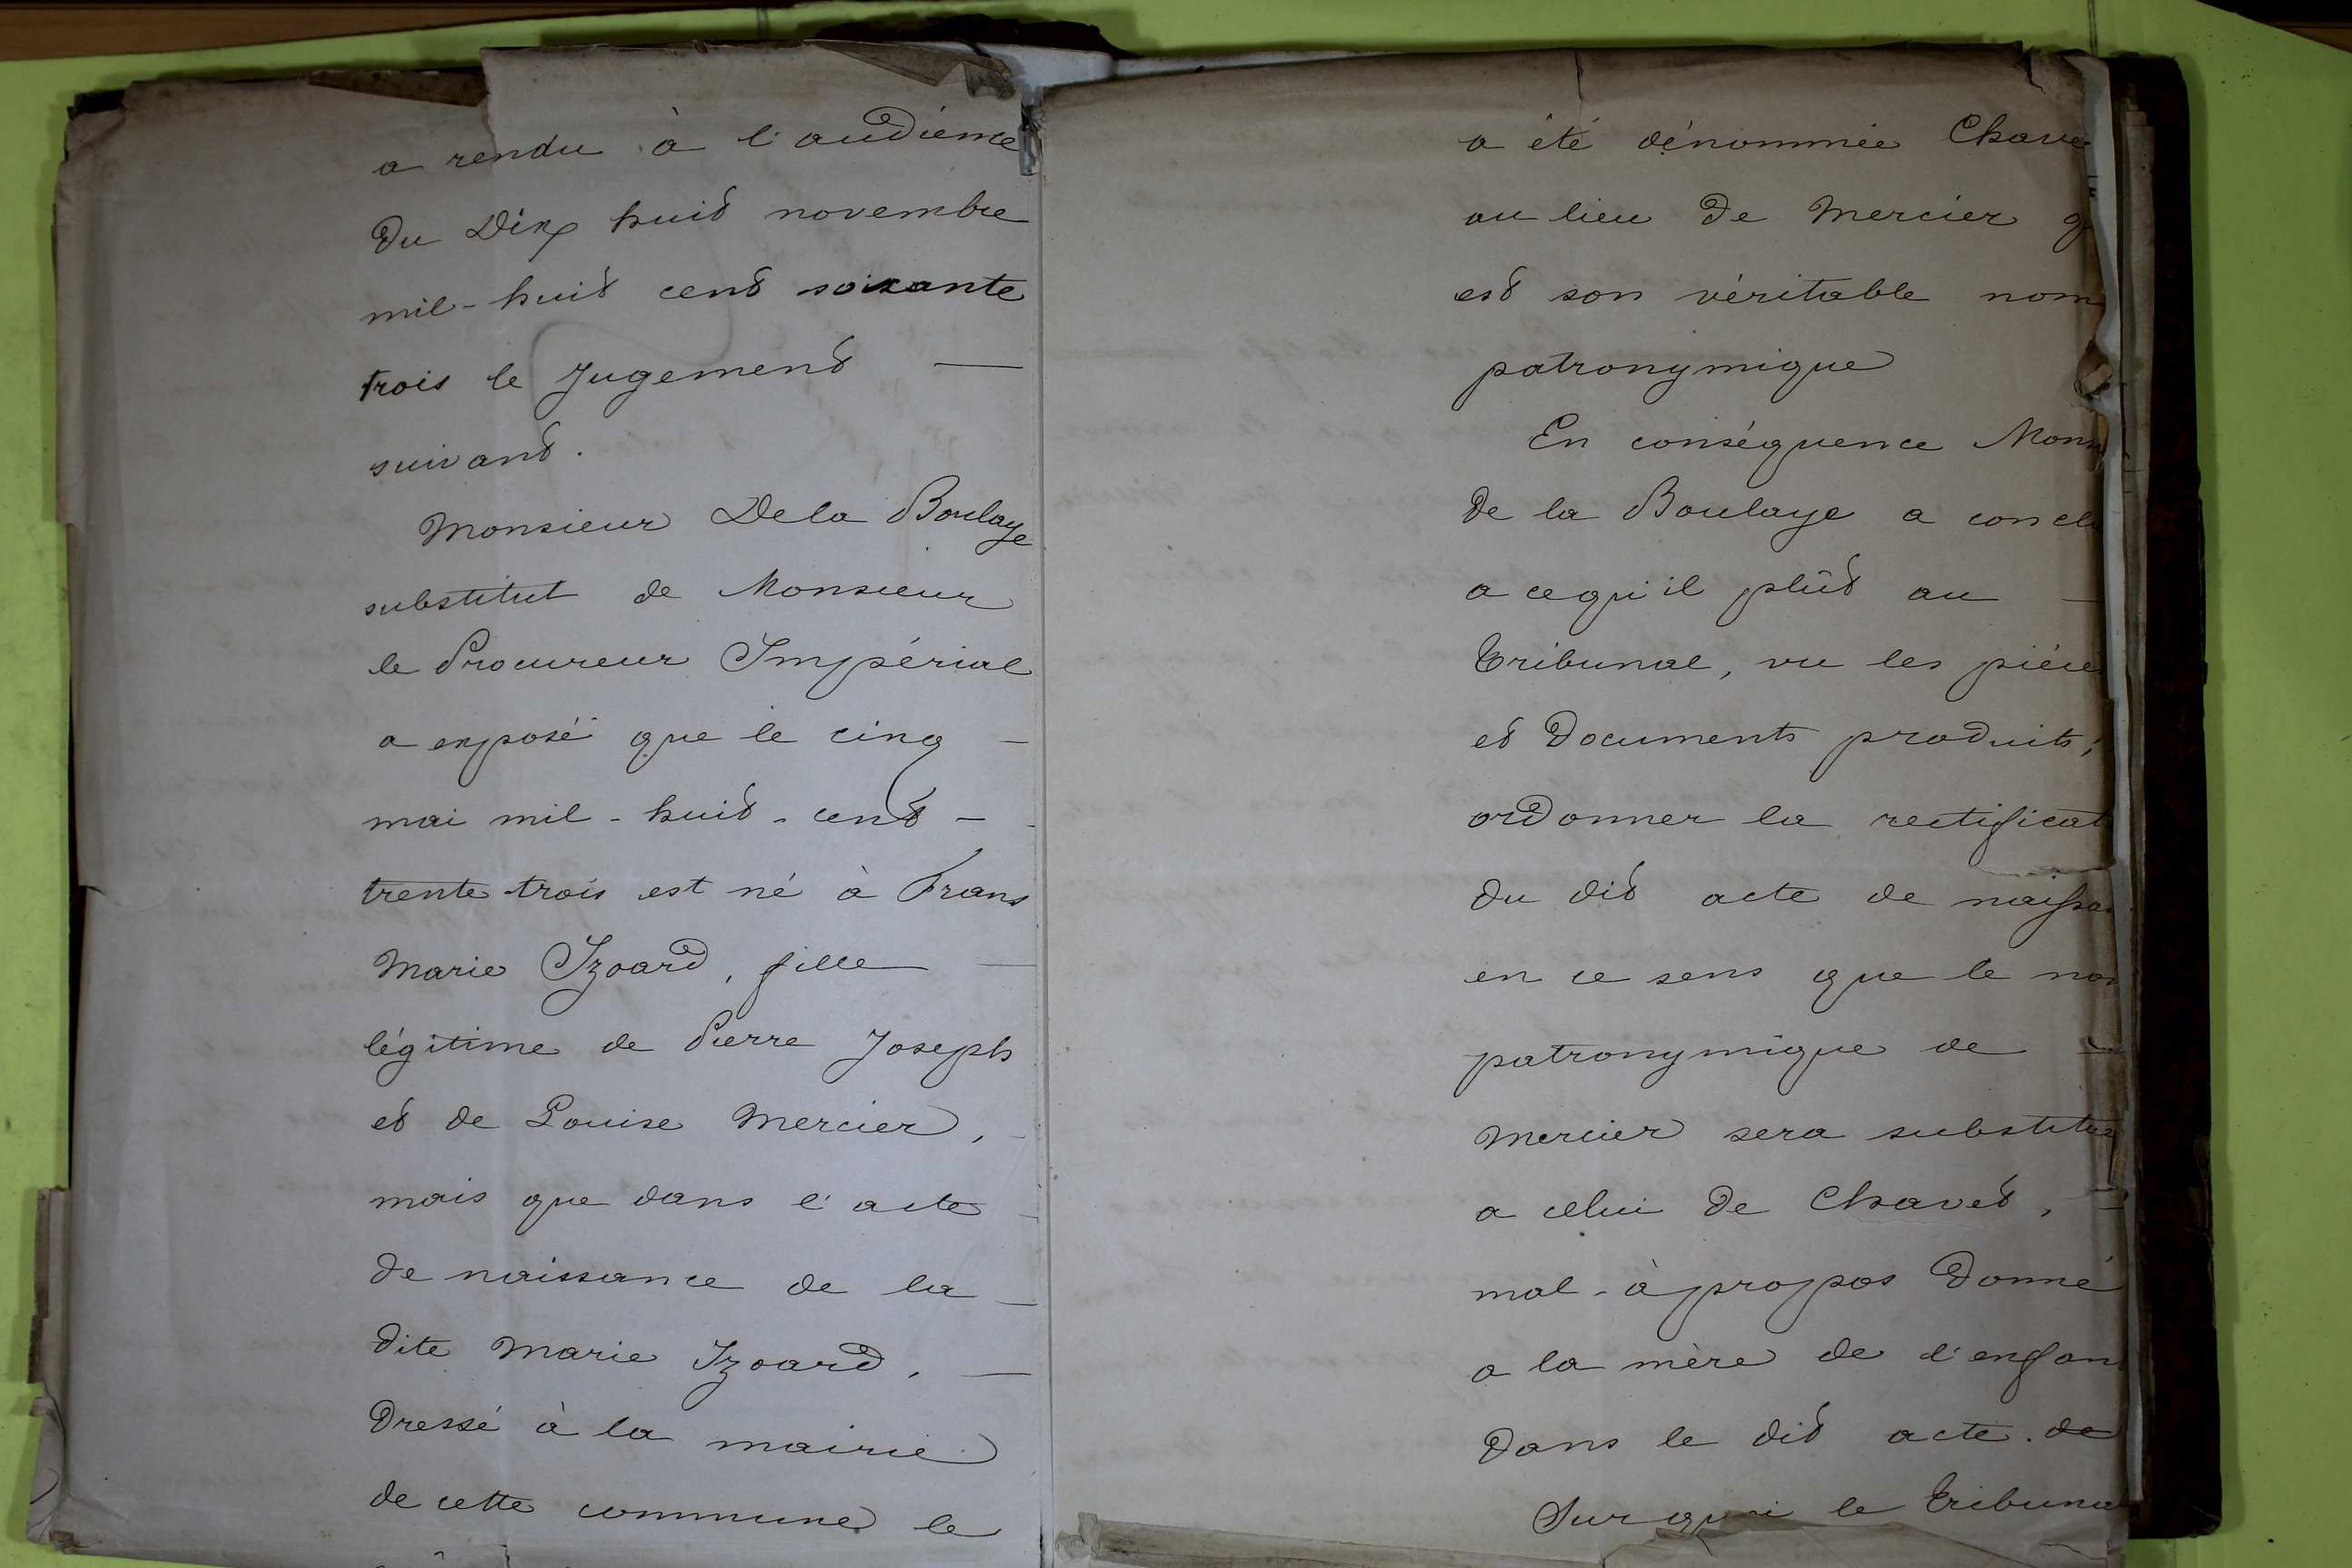 a rendu à l'audience
du Dix huit novembre
mil-huit cent soixante
trois le Jugement —
suivant.
Monsieur De la Boulaye
substitut de Monsieur
le Procureur Impérial
a exposé que le cinq —
mai mil-huit-cent —
trente trois est né à Frans
Marie Izoard, fille —
légitime de Pierre Joseph
et de Louise Mercier, -
mais que dans l'acte -
de naissance de la —
dite Marie Izoard, —
dressé à la mairie
de cette commune le
a été dénommée Chave
au lieu de Mercier q
est son véritable nom
patronymique
En conséquence Mon
de la Boulaye a conclu
a cequ'il plût au —
tribunal, vu les pièce
et documents produits;
ordonner la rectificat
du dit acte de naissa
en ce sens que le nom
patronymique de —
Mercier sera substitué
a celui de Chavet, —
mal-à propos donné
a la mère de l'enfan
dans le dit acte. de
Sur quoi le tribuna